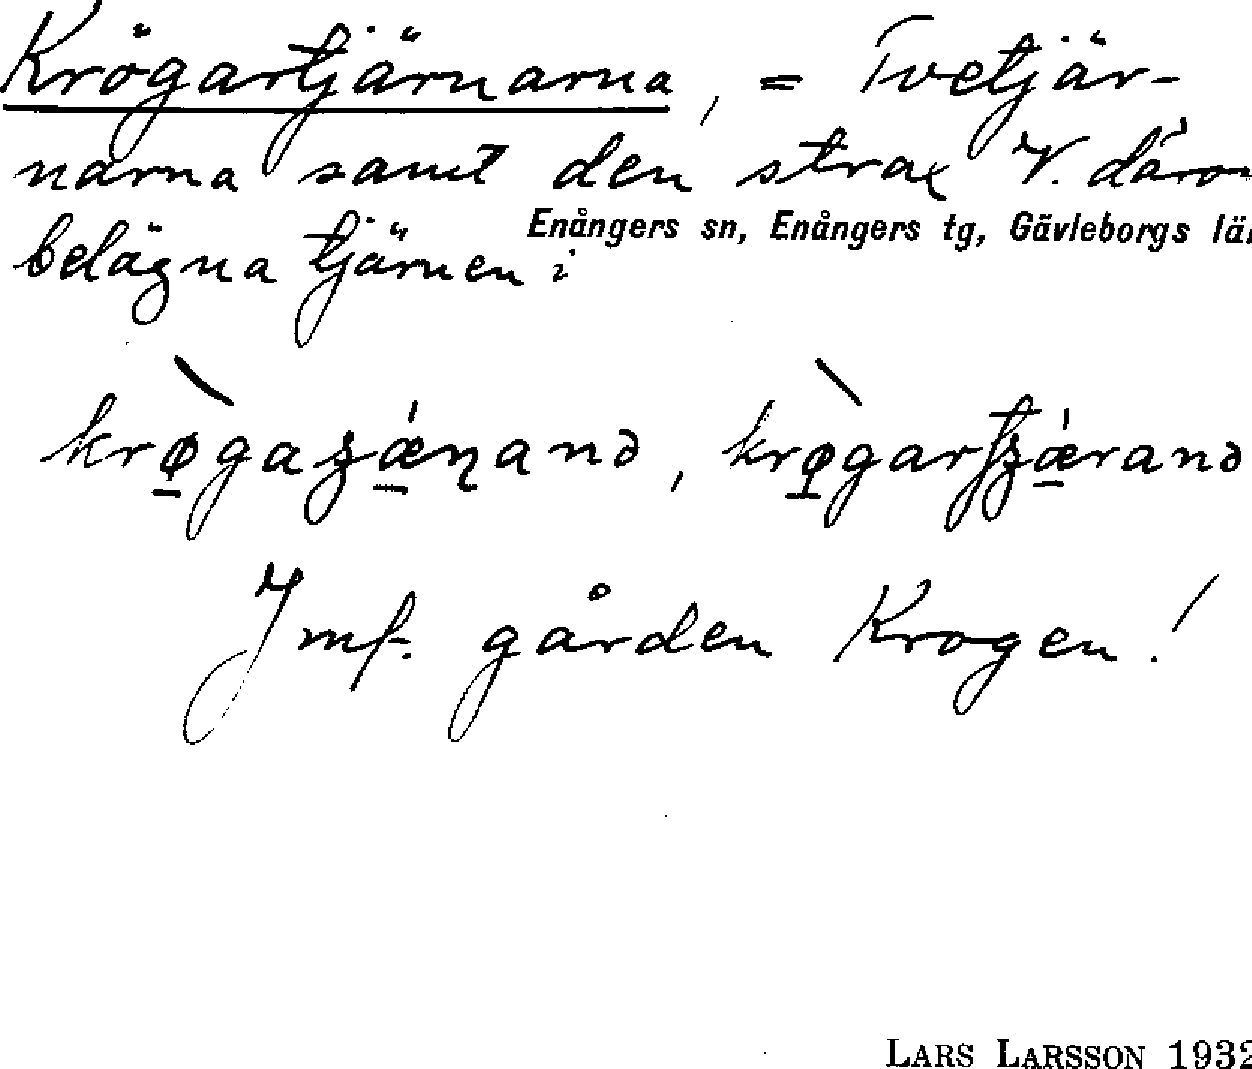 Krögartjärnarna, = Tvetjär-
narna samt den strax V. därom
belägna tjärnen i
Enångers sn, Enångers tg, Gävleborgs län
Jmf. gården Krogen!
LARS LARSSON 1932